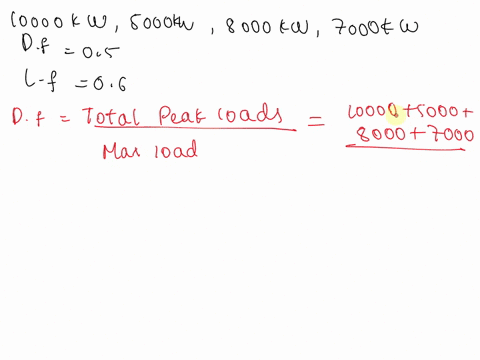 10000 kW, 5000kW, 8000 kW, 7000kW
D.f = 0.5
L-f = 0.6
D.f = Total Peak loads / Max load = 10000+5000+ 8000+7000